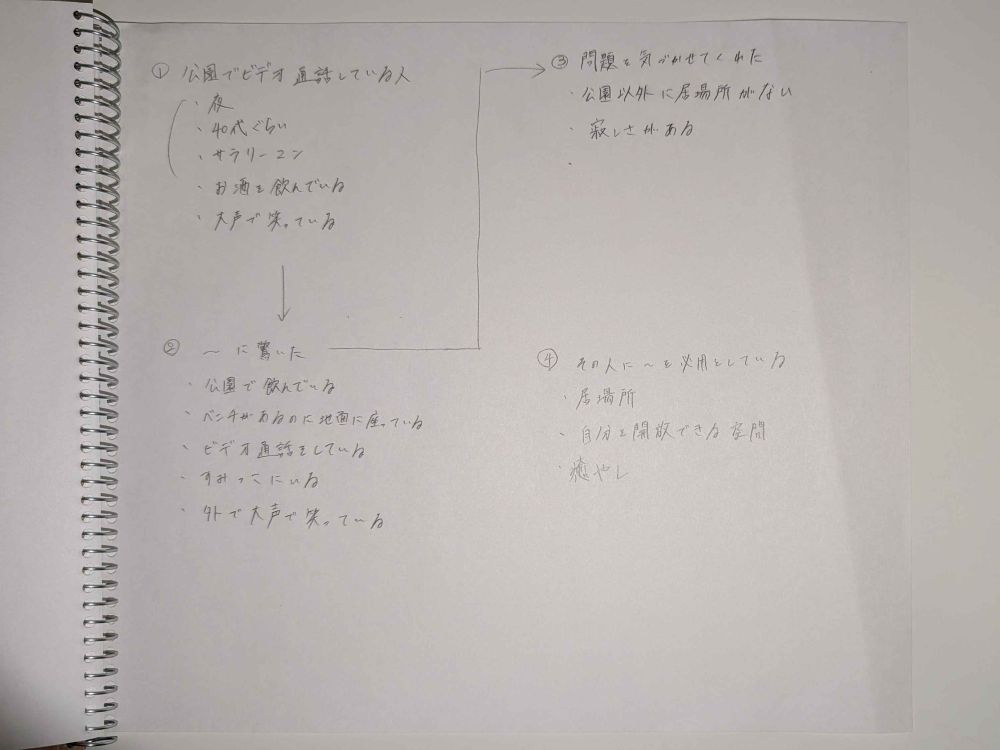 ① 公園でビデオ通話している人
・夜
・40代ぐらい
・サラリーマン
・お酒を飲んでいる
・大声で笑っている
② 〜に驚いた
・公園で飲んでいる
・ベンチがあるのに地面に座っている
・ビデオ通話をしている
・すみっこにいる
・外で大声で笑っている
③ 問題を気づかせてくれた
・公園以外に居場所がない
・寂しさがある
・
④ その人に〜を必用としている
・居場所
・自分を開放できる空間
・癒やし